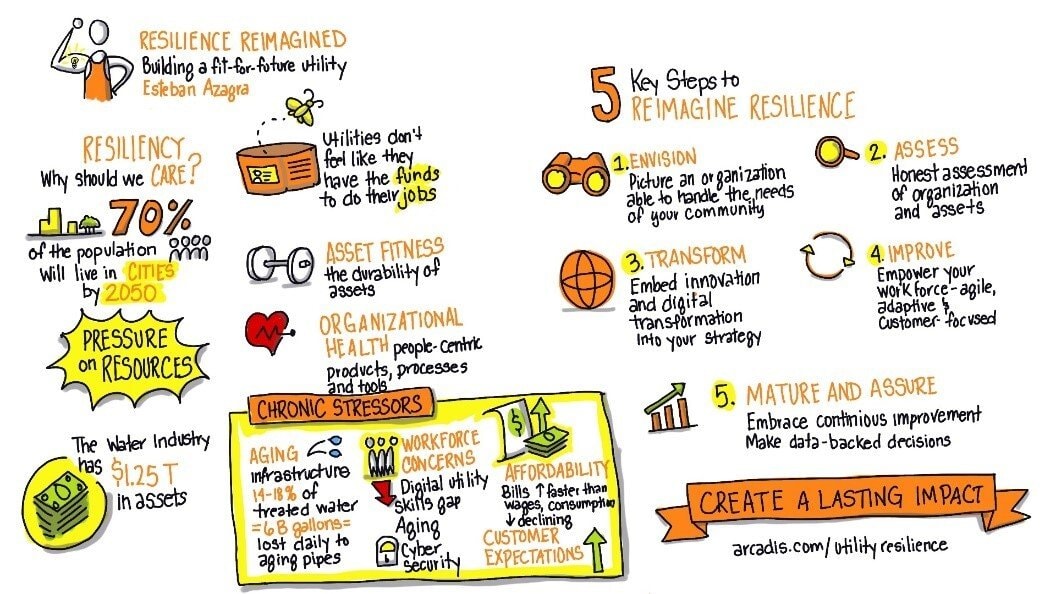 RESILIENCE REIMAGINED
Building a fit-for-future utility
Esteban Azagra
RESILIENCY
Why should we CARE?
70%
of the population
will live in CITIES
by 2050
PRESSURE
on RESOURCES
The Water Industry
has $1.25 T
in assets
Utilities don't
feel like they
have the funds
to do their jobs
ASSET FITNESS
the durability of
assets
ORGANIZATIONAL
HEALTH people-centric
products, processes
and tools
CHRONIC STRESSORS
AGING
infrastructure
14-18% of
treated water
=6B gallons=
lost daily to
aging pipes
WORKFORCE
CONCERNS
Digital utility
skills gap
Aging
Cyber
security
$
AFFORDABILITY
Bills ↑ faster than
wages, consumption
↓ declining
CUSTOMER
EXPECTATIONS
5 Key Steps to
REIMAGINE RESILIENCE
1. ENVISION
Picture an organization
able to handle the needs
of your community
2. ASSESS
Honest assessment
of organization
and assets
3. TRANSFORM
Embed innovation
and digital
transformation
into your strategy
4. IMPROVE
Empower your
workforce-agile,
adaptive &
customer-focused
5. MATURE AND ASSURE
Embrace continious improvement
Make data-backed decisions
CREATE A LASTING IMPACT
arcadis.com/utilityresilience